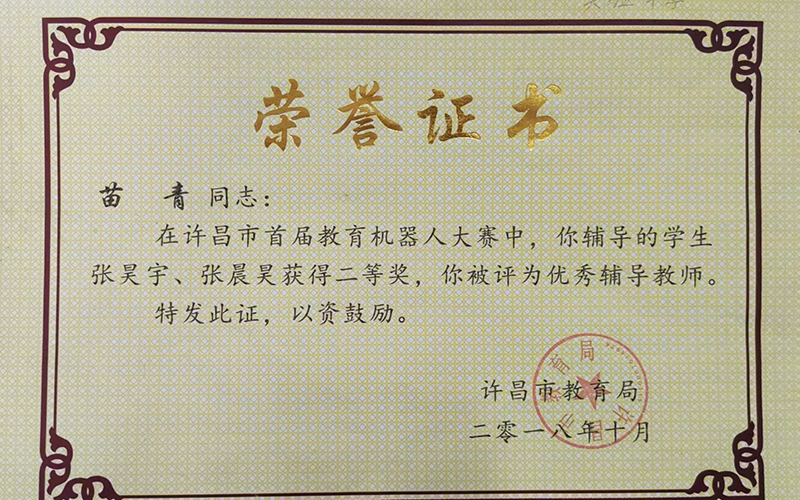 荣誉证书
苗 青 同志：
在许昌市首届教育机器人大赛中，你辅导的学生
张昊宇、张晨昊获得二等奖，你被评为优秀辅导教师。
特发此证，以资鼓励。
许昌市教育局
二零一八年十月